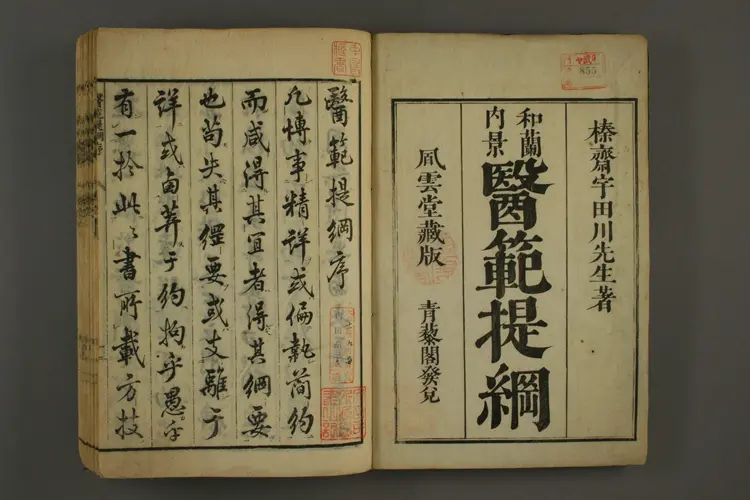 榛齋宇田川先生著
和蘭
内景
醫範提綱
風雲堂藏版
青藜閣發兌
855
醫範提綱序
凡博事精詳或偏執簡約
而咸得其宜者得其綱要
也苟失其要或支離于
詳或鹵莽于約拘乎愚乎
有一於此書所載方技